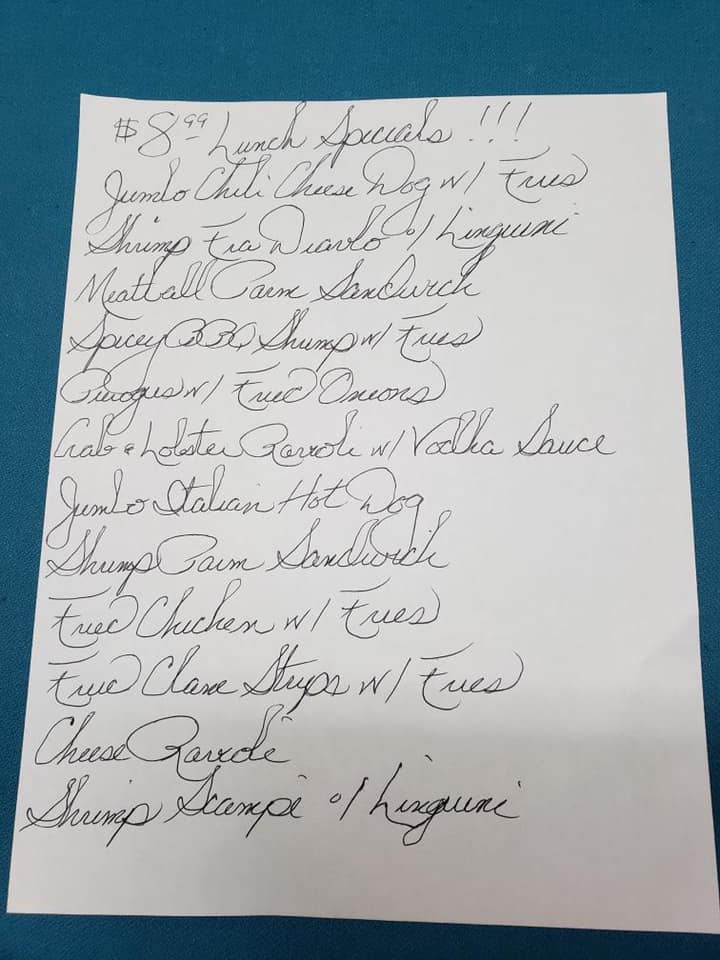 $8.99 Lunch Specials !!!
Jumbo Chili Cheese Dog w/ Fries
Shrimp Fra Diavlo o/ Linguini
Meatball Parm Sandwich
Spicey BBQ Shrimp w/ Fries
Pierogies w/ Fried Onions
Crab & Lobster Ravioli w/ Vodka Sauce
Jumbo Italian Hot Dog
Shrimp Parm Sandwich
Fried Chicken w/ Fries
Fried Clam Strips w/ Fries
Cheese Ravioli
Shrimp Scampi o/ Linguini